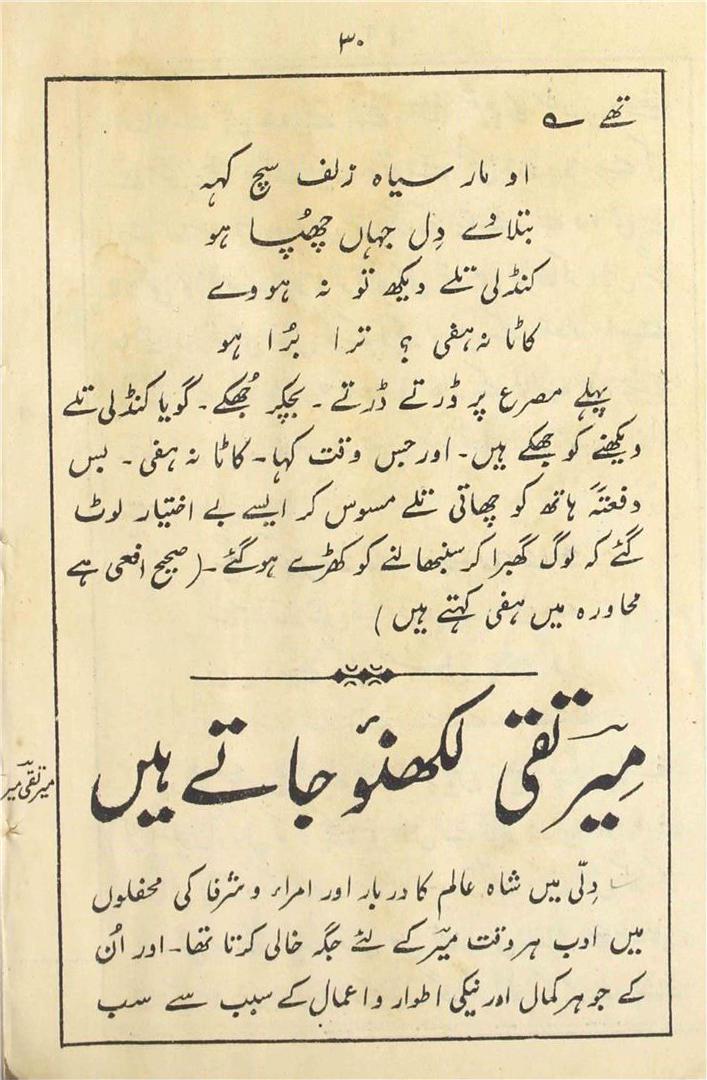 ۳۰
تھے ؎
او مار سیاہ زلف سچ کہہ
بتلا دے دِل جہاں چھُپا ہو
کنڈلی تلے دیکھ تو نہ ہووے
کاٹا نہ ہفی ؟ ترا بُرا ہو
پہلے مصرع پر ڈرتے ڈرتے ۔ بچکر جُھکے ۔ گویا کنڈلی تلے
دیکھنے کو جھکے ہیں ۔ اور جس وقت کہا ۔ کاٹا نہ ہفی ۔ بس
دفعتہً ہاتھ کو چھاتی تلے مسوس کر ایسے بے اختیار لوٹ
گئے کہ لوگ گھبرا کر سنبھالنے کو کھڑے ہو گئے ۔ (صحیح افعی ہے
محاورہ میں ہفی کہتے ہیں )
مِیر تقی لکھنؤ جاتے ہیں
میر تقی میر
دِلّی میں شاہ عالم کا دربار اور امراء و شرفا کی محفلوں
میں ادب ہر وقت میر کے لئے جگہ خالی کرتا تھا ۔ اور اُن
کے جوہر کمال اور نیکی اطوار و اعمال کے سبب سے سب